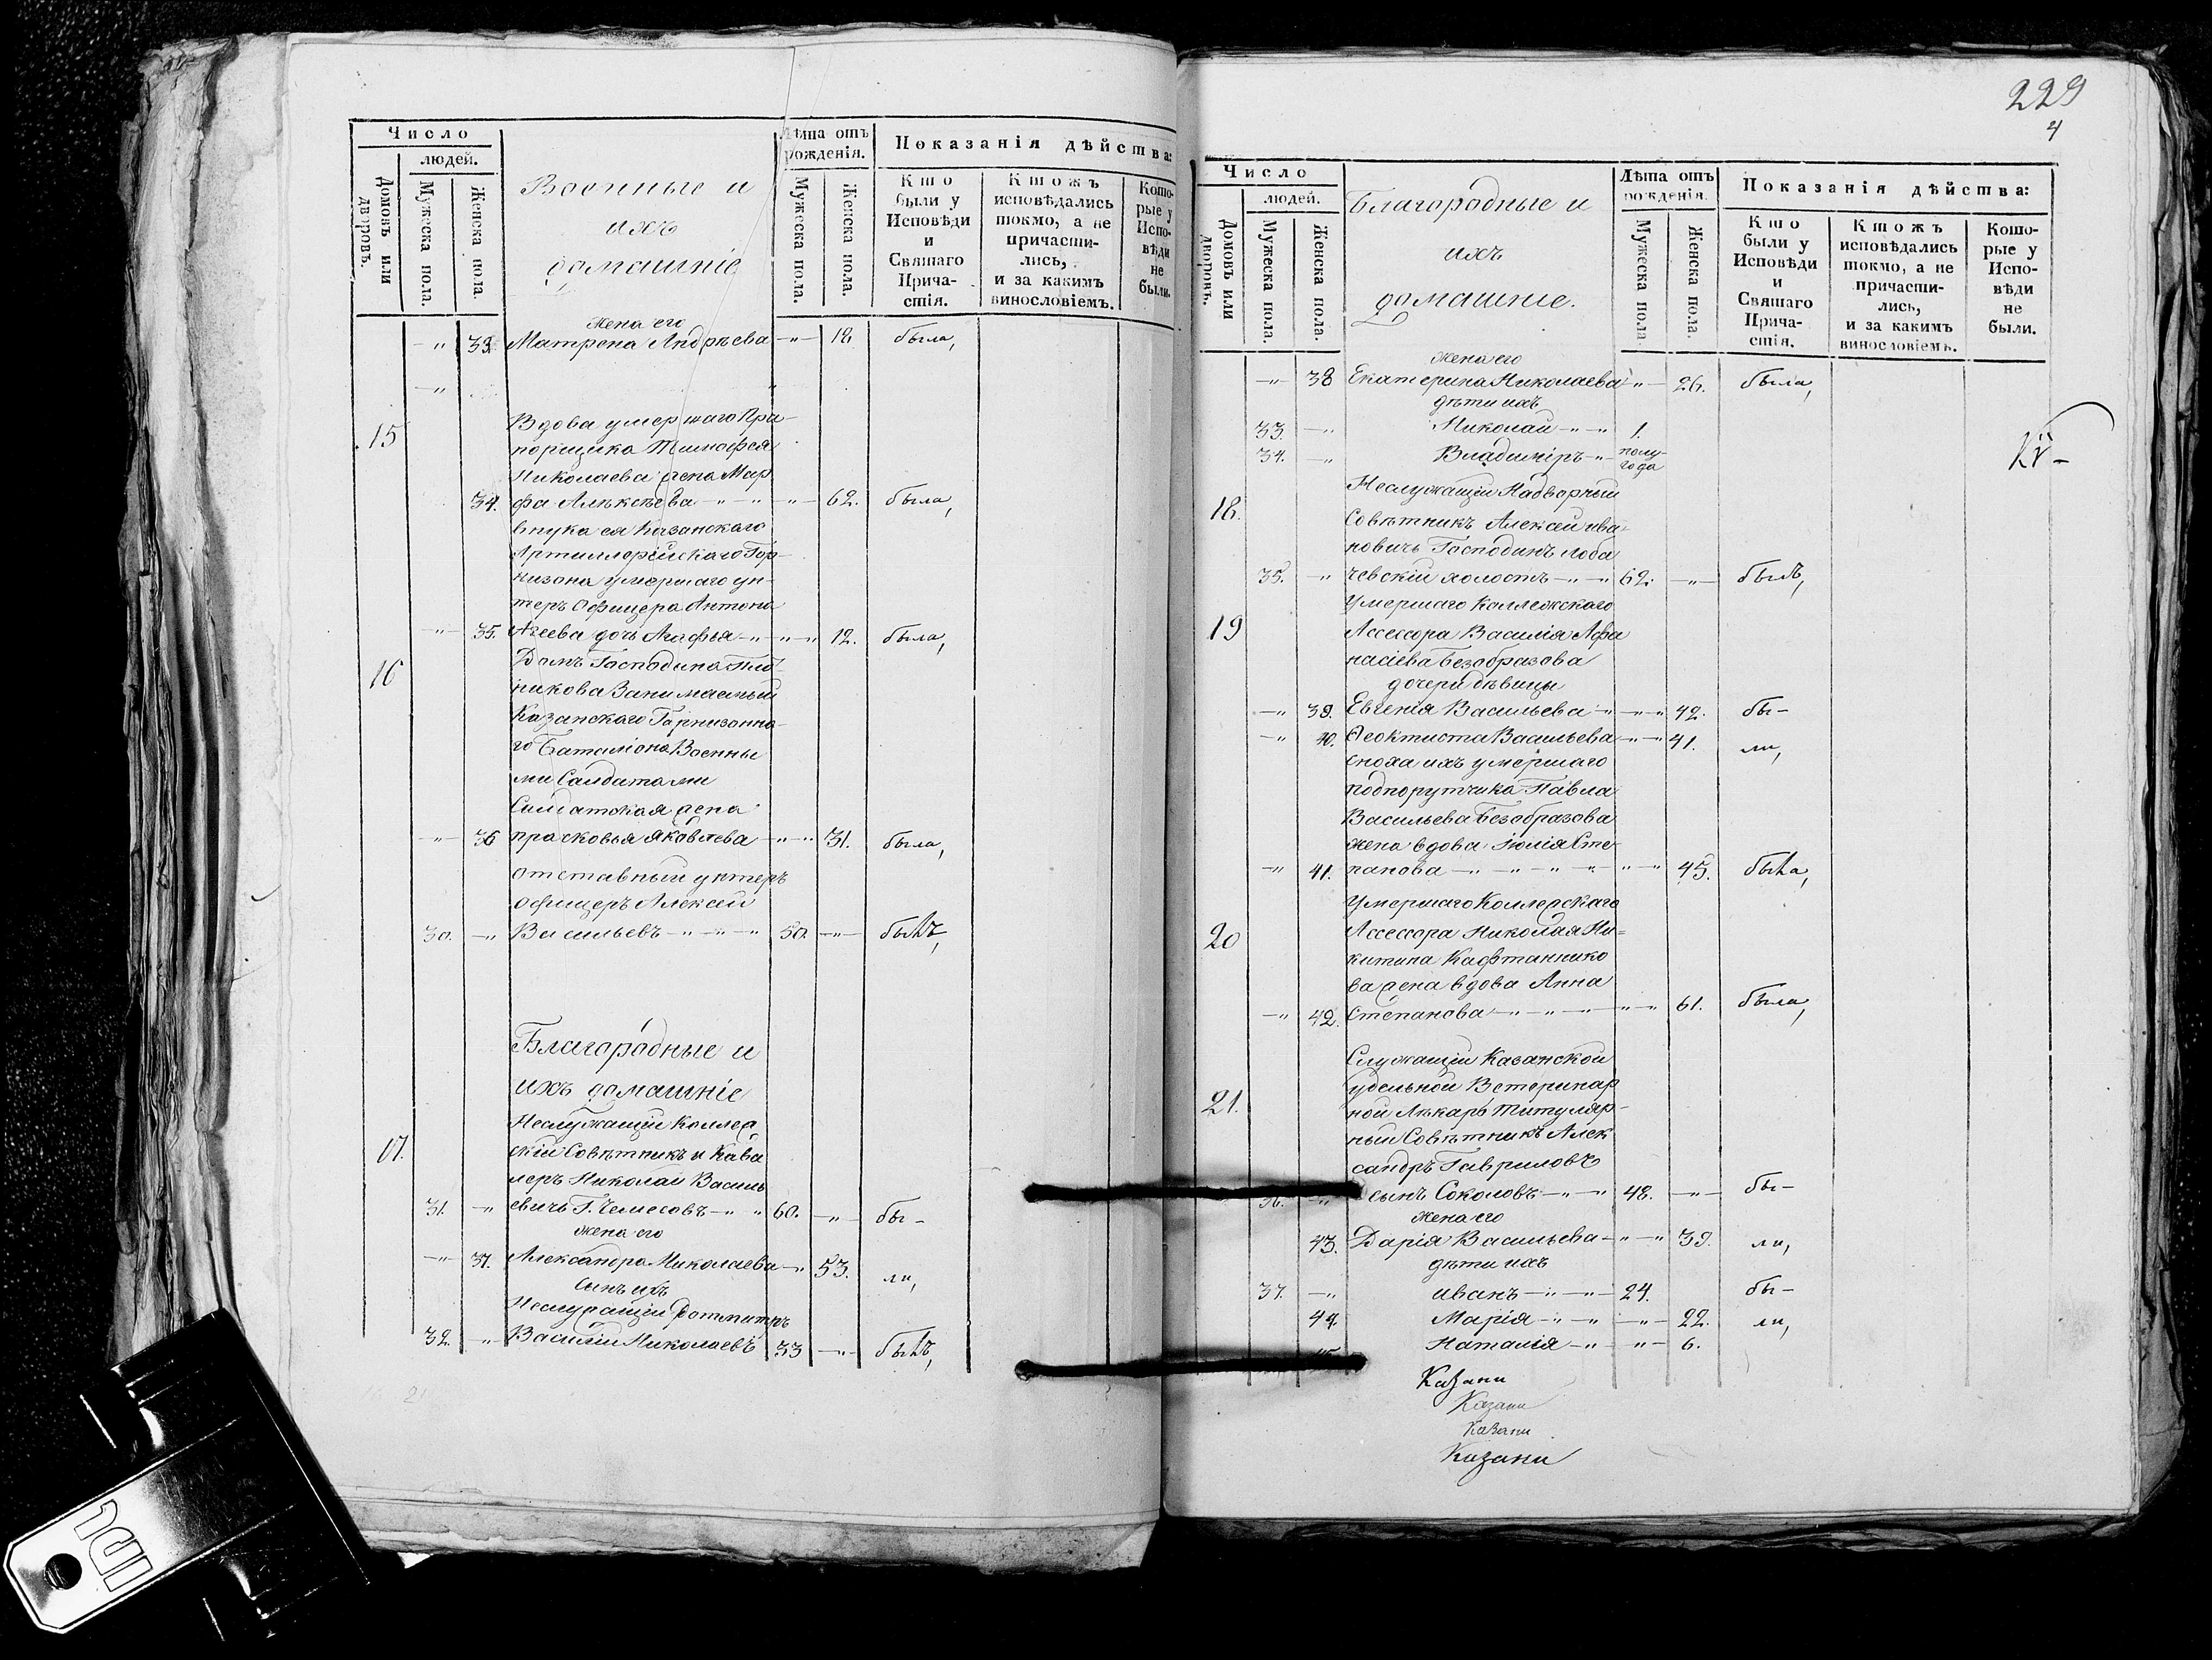 Число
людей.
Домовъ или дворовъ.
Мужеска пола.
Женска пола.
Военные и
ихъ
домашніе
Лѣта отъ
рожденія.
Мужеска пола.
Женска пола.
Показанія дѣйства:
Кто
были у
Исповѣди
и
Святаго
Прича-
стія.
Ктожъ
исповѣдались
токмо, а не
причасти-
лись,
и за какимъ
винословіемъ.
Кото-
рые у
Испо-
вѣди
не
были.
жена его
-"- 33. Матрена Андрѣева -"- 18. была,
-"-
Вдова умершаго Пра-
15
порщика Тимофея
Николаева жена Мар
34. фа Алѣксѣева -"-"- 62. была,
внука ея Казанскаго
Артиллерійскаго Гар-
низона умершаго ун-
теръ офицера Антона
-"- 35. Агеева дочь Агафья -"-"-" 12. была,
16
Домъ Господина Пло-
никова Занимаемый
Казанскаго Гарнизонна-
го Баталіона Военны
ми Салдатами
Салдатская жена
-"- 36 прасковья Яковлева -"-"- 31. была,
отставный унтеръ
офицеръ Алексѣй
30. -"- Васильевъ -"-"-" 50. -"- былъ,
Благородные и
ихъ домашніе
Неслужащій Коллеж
17.
скій Совѣтникъ и Кава
леръ Николай Василь
31. -" евичь Г. Чемесовъ -"-" 60. -"- бы-
жена его
-"- 37. Александра Николаева -" 53. ли,
Сынъ ихъ
Неслужащій Ротмитръ
32. -" Василій Николаевъ 33 -"- былъ,
229
4
Число
людей.
Домовъ или дворовъ.
Мужеска пола.
Женска пола.
Благородные и
ихъ
домашніе.
Лѣта отъ
рожденія.
Мужеска пола
Женска пола.
Показанія дѣйства:
Кто
были у
Исповѣди
и
Святаго
Прича-
стія.
Ктожъ
исповѣдались
токмо, а не
причасти-
лись,
и за какимъ
винословіемъ.
Кото-
рые у
Испо-
вѣди
не
были.
жена его
-"- 38 Екатерина Николаева -"- 26. была,
дѣти ихъ
33. -" Николай -"-" 1.
34. -" Владиміръ -"- полу-
года
Неслужащій Надворный
18.
Совѣтникъ Алексѣй ива-
новичь Господинъ лоба
35. -" чевскій холостъ -"-" 62. -"- былъ,
Умершаго Коллежскаго
19
Ассессора Василія Афа
насіева Безобразова
дочери дѣвицы
-"- 39. Евгенія Васильева -"-"-" 42. бы-
-"- 40. Ѳеоктиста Васильева -"-" 41. ли,
сноха ихъ умершаго
подпорутчика Павла
Васильева Безобразова
жена вдова Іюлія Сте
-" 41. панова -"-"-"-"-" 45. была,
Умершаго Коллежскаго
20
Ассессора Николая Ни=
китина Кафтаннико
ва жена вдова Анна
-" 42. Степанова -"-"-"-" 61. была,
Служащій Казанской
21.
удельной Ветеринар
ной Лѣкарь Титуляр-
ный Совѣтникъ Алек
сандръ Гавриловъ
36. -" сынъ Соколовъ -"-" 48. -"- бы-
жена его
43. Дарія Васильева -"-" 39. ли,
дѣти ихъ
37. -" иванъ -"-"- 24. бы-
44. Марія -"-"-"- 22. ли,
Наталія -"-"- 6.
Казани
Казани
Казани
Казани